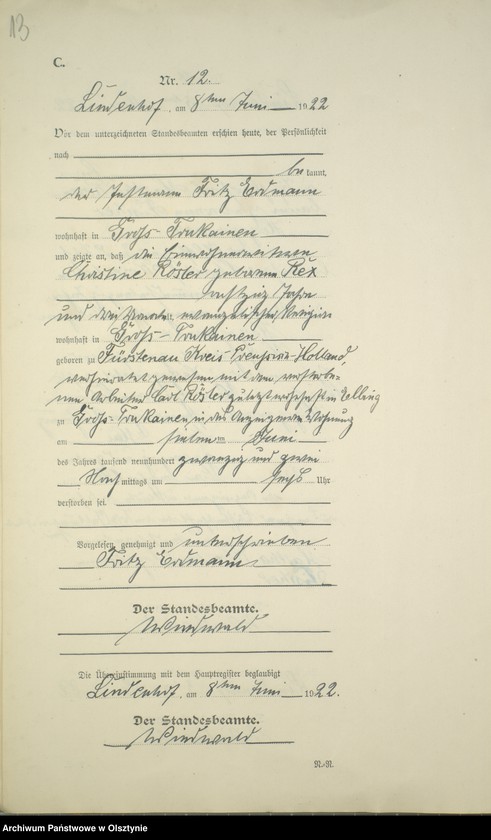 13
C.
Nr. 12.
Lindenhof, am 8ten Juni 1922
Vor dem unterzeichneten Standesbeamten erschien heute, der Persönlichkeit
nach
bekannt,
der Fritz Erdmann
wohnhaft in Groß-Trukainen
und zeigte an, daß die Einwohnerwitwe
Christine Röster geborene Rex
Jahre
und drei Monate alt, evangelischer Religion
wohnhaft in Groß-Trukainen
geboren zu Fürstenau Kreis Preussisch-Holland
verheiratet gewesen mit dem verstorbe-
nen Arbeiter Carl Röster zuletzt wohnhaft in Elling
zu Groß-Trukainen in des Anzeigenden Wohnung
am sieben ten Juni
des Jahres tausend neunhundert zwanzig und zwei
Nachmittags um sechs Uhr
verstorben sei.
Vorgelesen, genehmigt und unterschrieben
Fritz Erdmann
Der Standesbeamte.
Windwald
Die Übereinstimmung mit dem Hauptregister beglaubigt
Lindenhof, am 8ten Juni 1922.
Der Standesbeamte.
Windwald
N.-R.
Archiwum Państwowe w Olsztynie